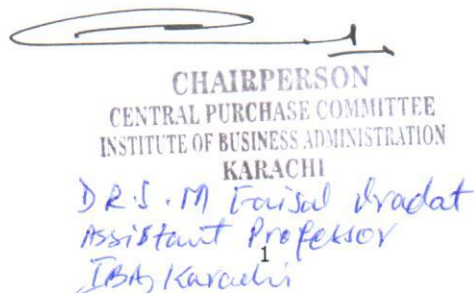 CHAIRPERSON
CENTRAL PURCHASE COMMITTEE
INSTITUTE OF BUSINESS ADMINISTRATION
KARACHI
DR.S.M Faisal Iradat
Assistant Professor
1
IBA, Karachi